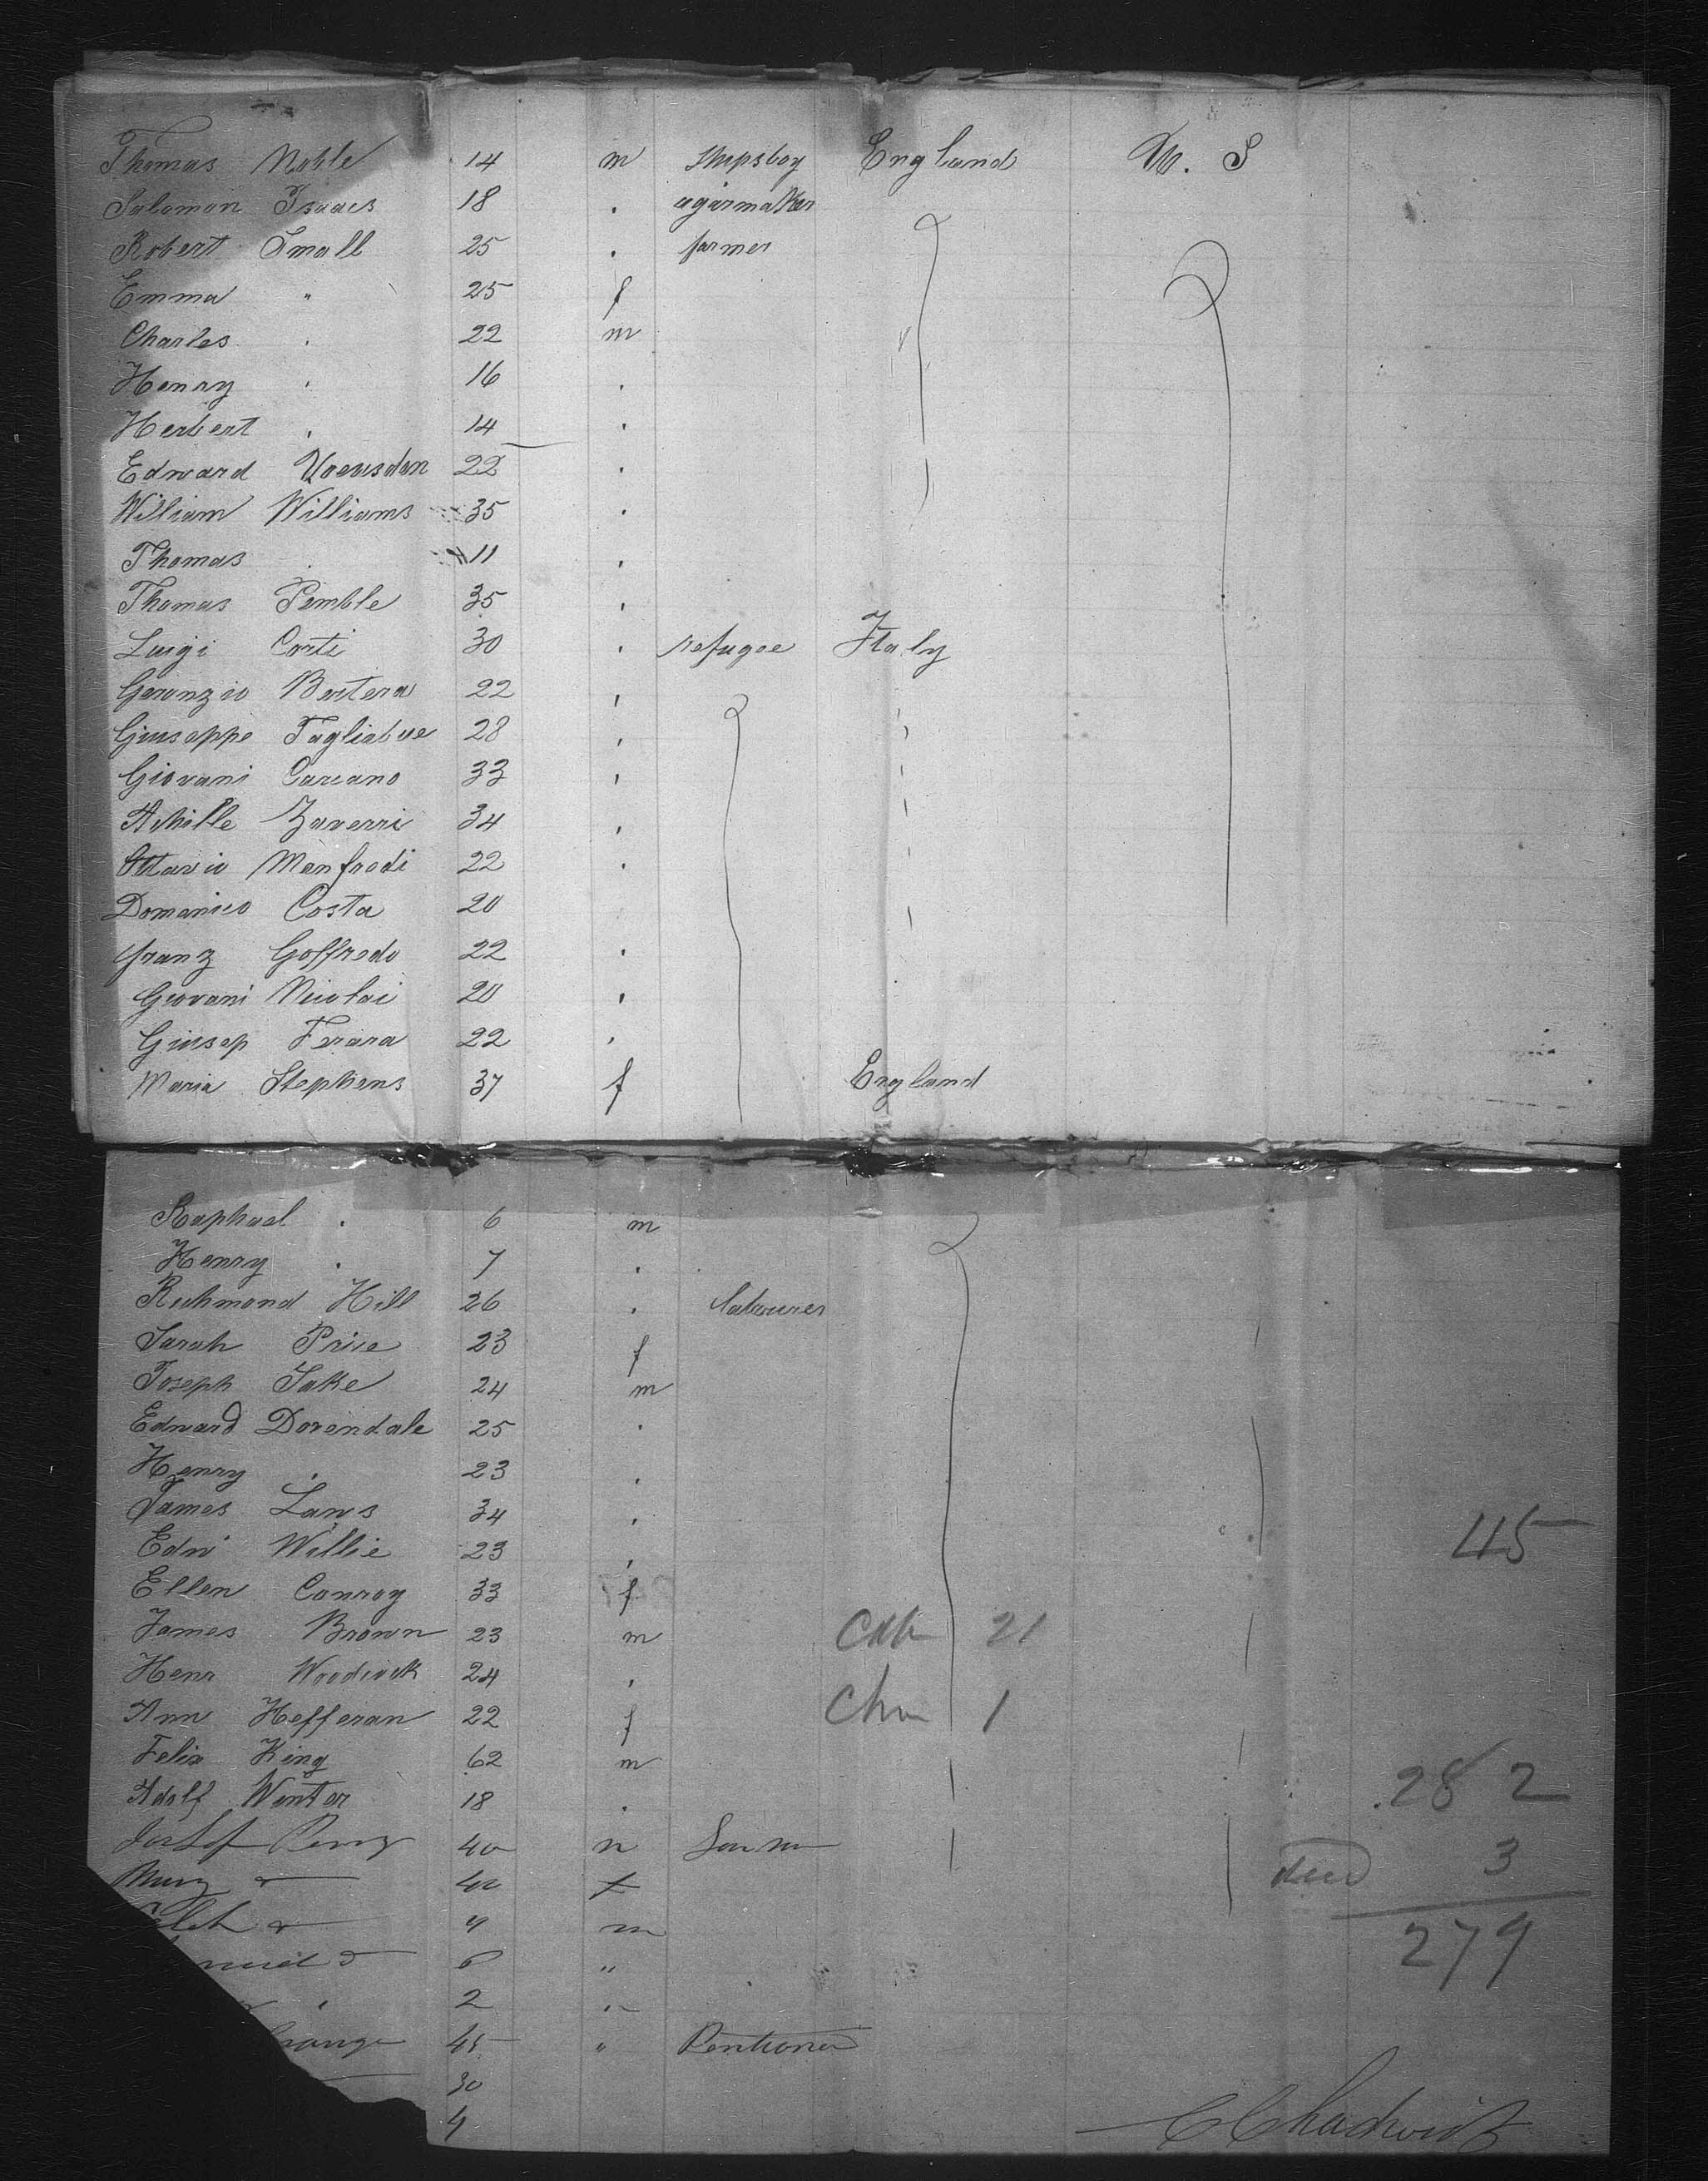 Thomas Noble 14 m Shipsboy England U. S
Salomon Isaacs 18 . cigarmaker
Robert Small 25 . farmer
Emma " 25 f
Charles . 22 m
Henry ' 16 .
Herbert . 14 .
Edward 22 .
William Williams 35 .
Thomas . 11 .
Thomas Pemble 35 .
Luigi Corti 30 . refugee Italy
Geronzio Bertera 22 '
Giuseppe Tagliabue 28 '
Giovani Carcano 33 '
Achille Zaverri 34 .
Ottavio Manfredi 22 .
Domenico Costa 20
Franz Goffredo 22 .
Giovani Nicolai 20 '
Giusep Ferara 22 .
Maria Stephens 37 f England
Raphael . 6 m
Henry . 7 .
Richmond Hill 26 . labourer
Sarah Price 23 f
Joseph Jake 24 m
Edward Dovendale 25 .
Henry . 23 .
James Laws 34 .
Edw Willie 23 , 45
Ellen Conroy 33 f
James Brown 23 m Cab 21
Henr Woodcock 24 .
Ann Hefferan 22 f Chn 1
Felix King 62 m
Adolf Winter 18 . 282
Perry 40 m
Mary 40 f 3
4 m
279
6 "
2 "
45 " Pentioner
30
4 C Chadwick